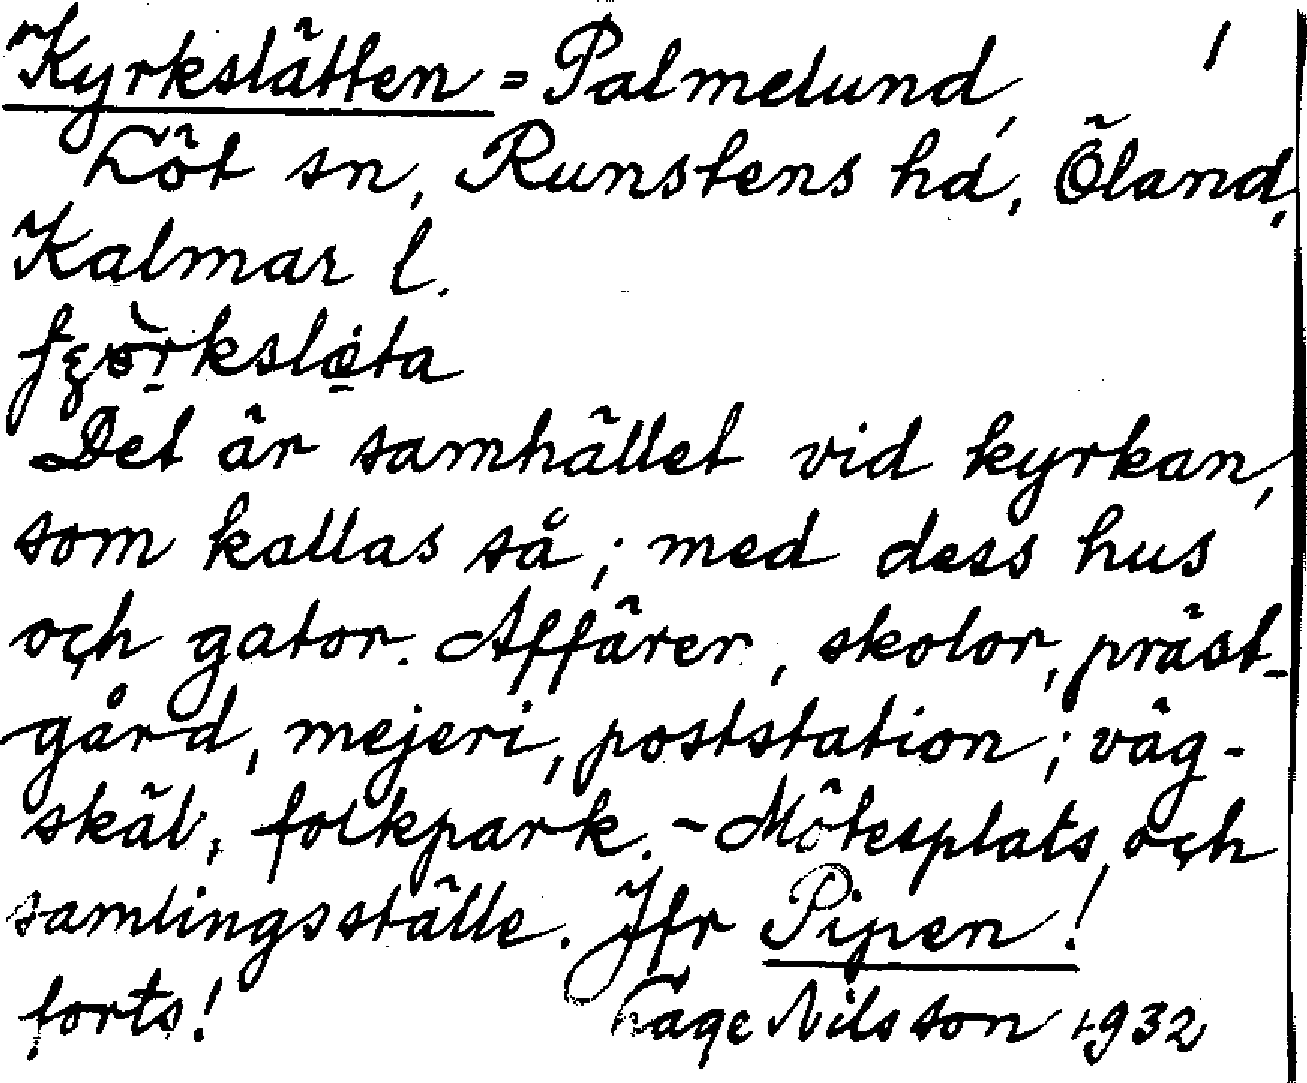 Kyrkslätten = Palmelund, 1
Löt sn, Runstens hd, Öland,
Kalmar l.
Det är samhället vid kyrkan,
som kallas så; med dess hus
och gator. Affärer, skolor, präst-
gård, mejeri, poststation; väg-
skäl, folkpark. - Mötesplats och
samlingsställe. Jfr Pipen!
forts! Lage Nilsson 1932